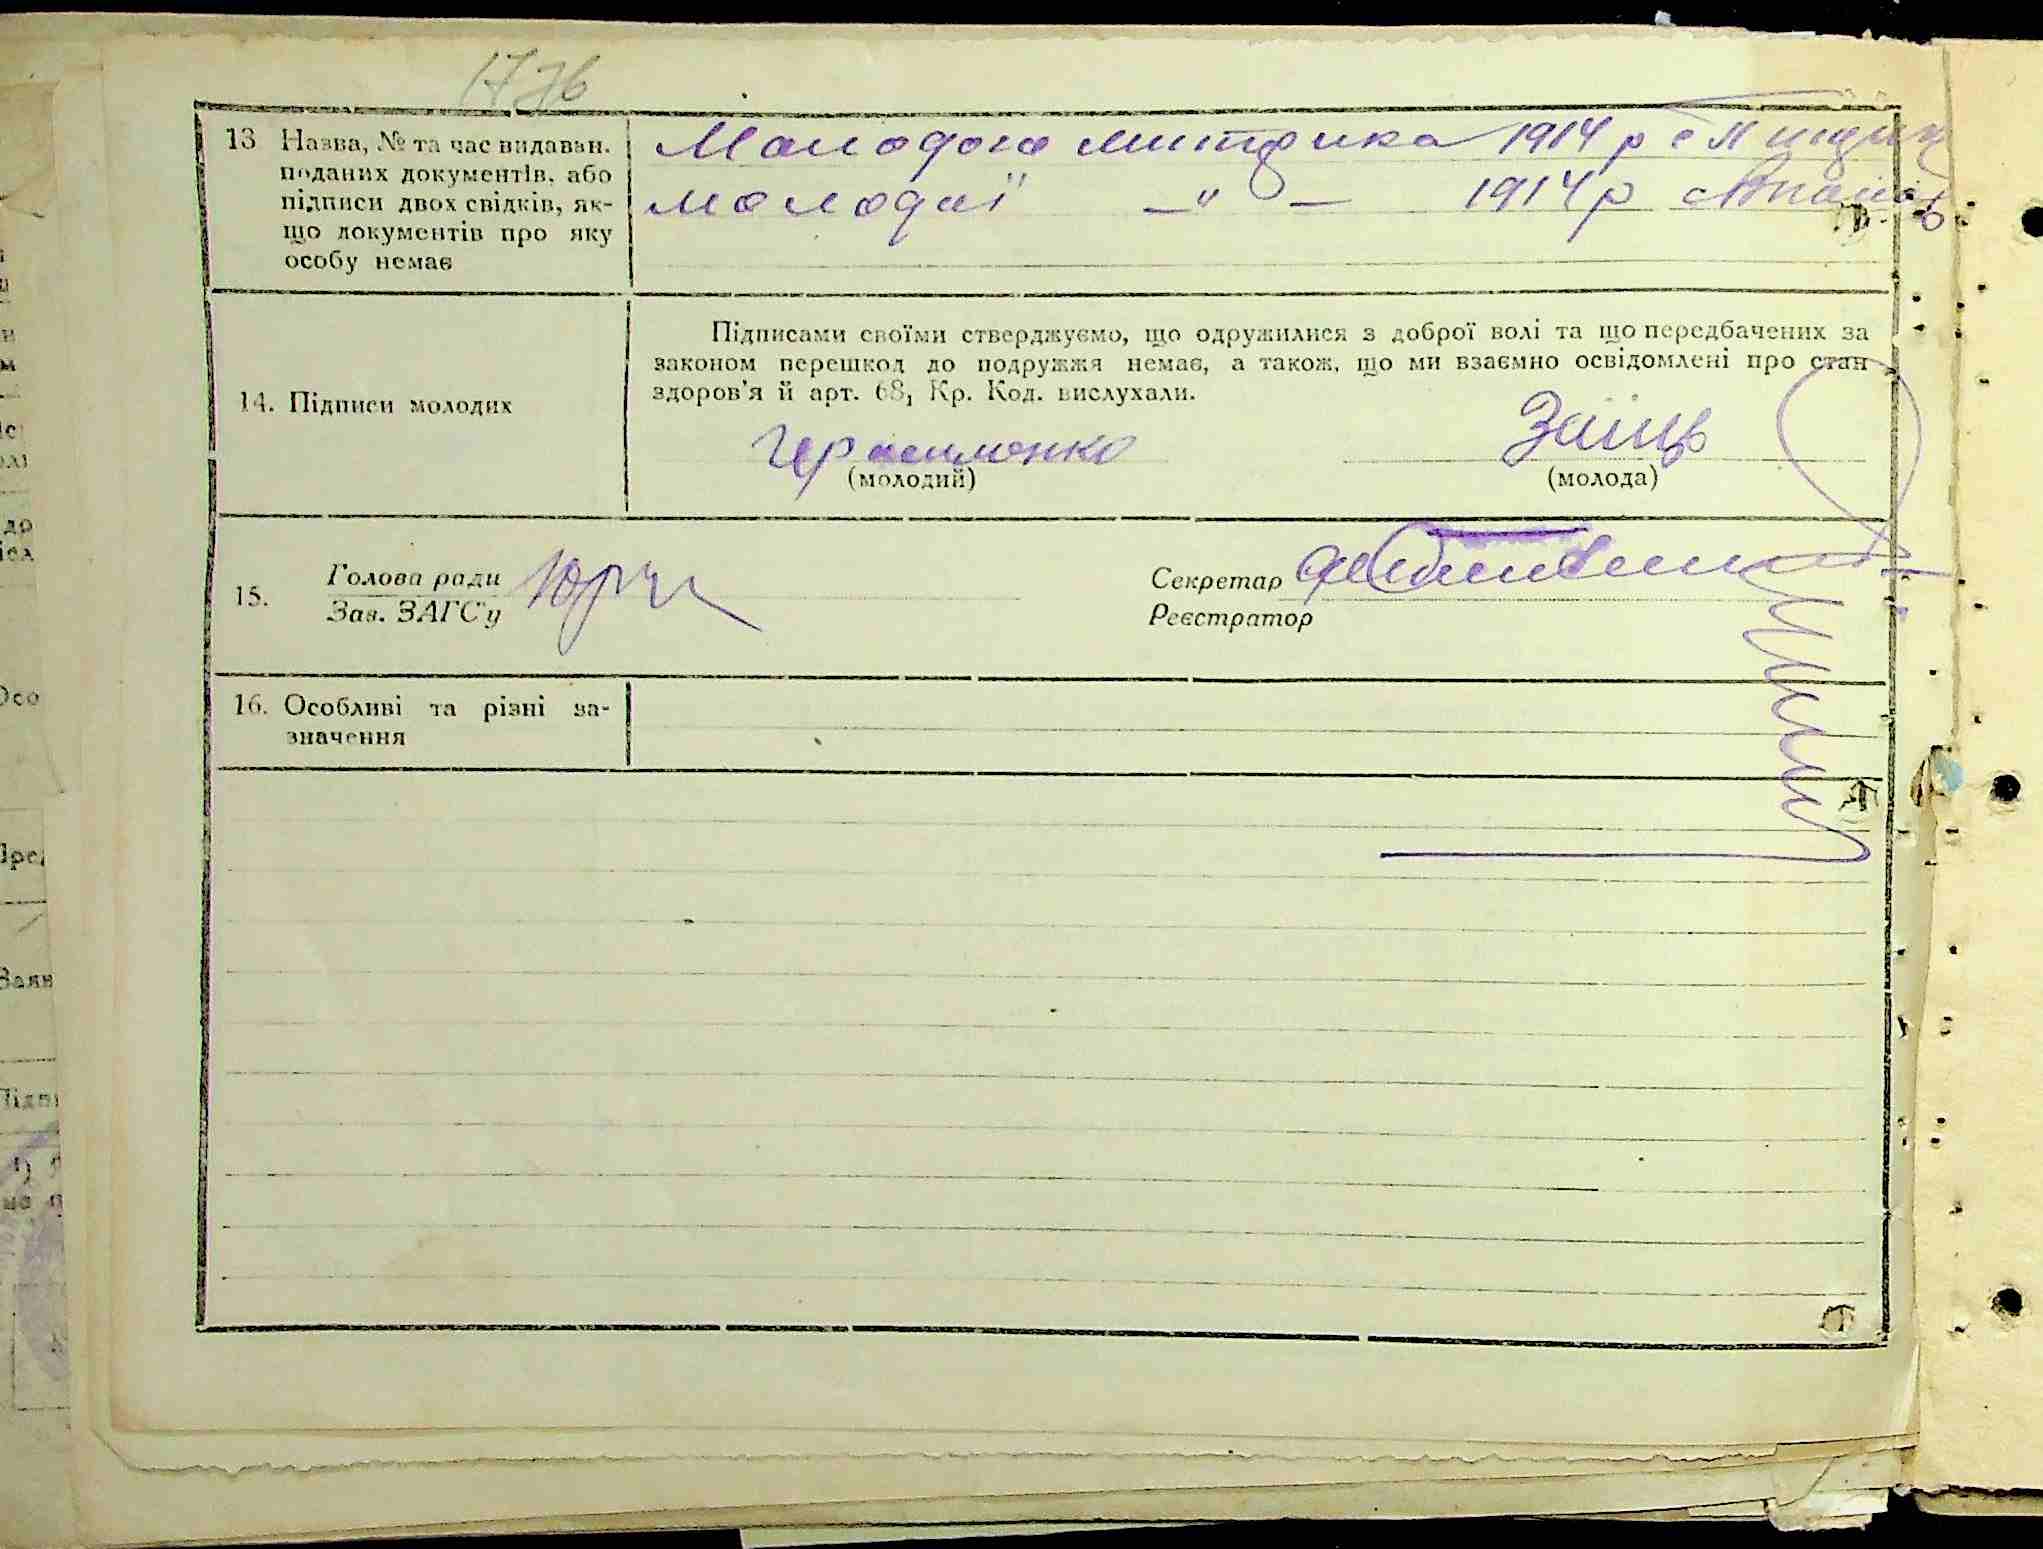 13 Назва, № та час видаван.
поданих документів, або
підписи двох свідків, як-
що документів про яку
особу немає
Молодого митрика 1914 р с
молодої —"— 1914 р с
14. Підписи молодих
Підписами своїми стверджуємо, що одружилися з доброї волі та що передбачених за
законом перешкод до подружжя немає, а також, що ми взаємно освідомлені про стан
здоров'я й арт. 68, Кр. Код. вислухали.
Герасименко
(молодий)
Заїць
(молода)
15.
Голова ради
Зав. ЗАГС'у
Секретар
Реєстратор
16. Особливі та різні за-
значення